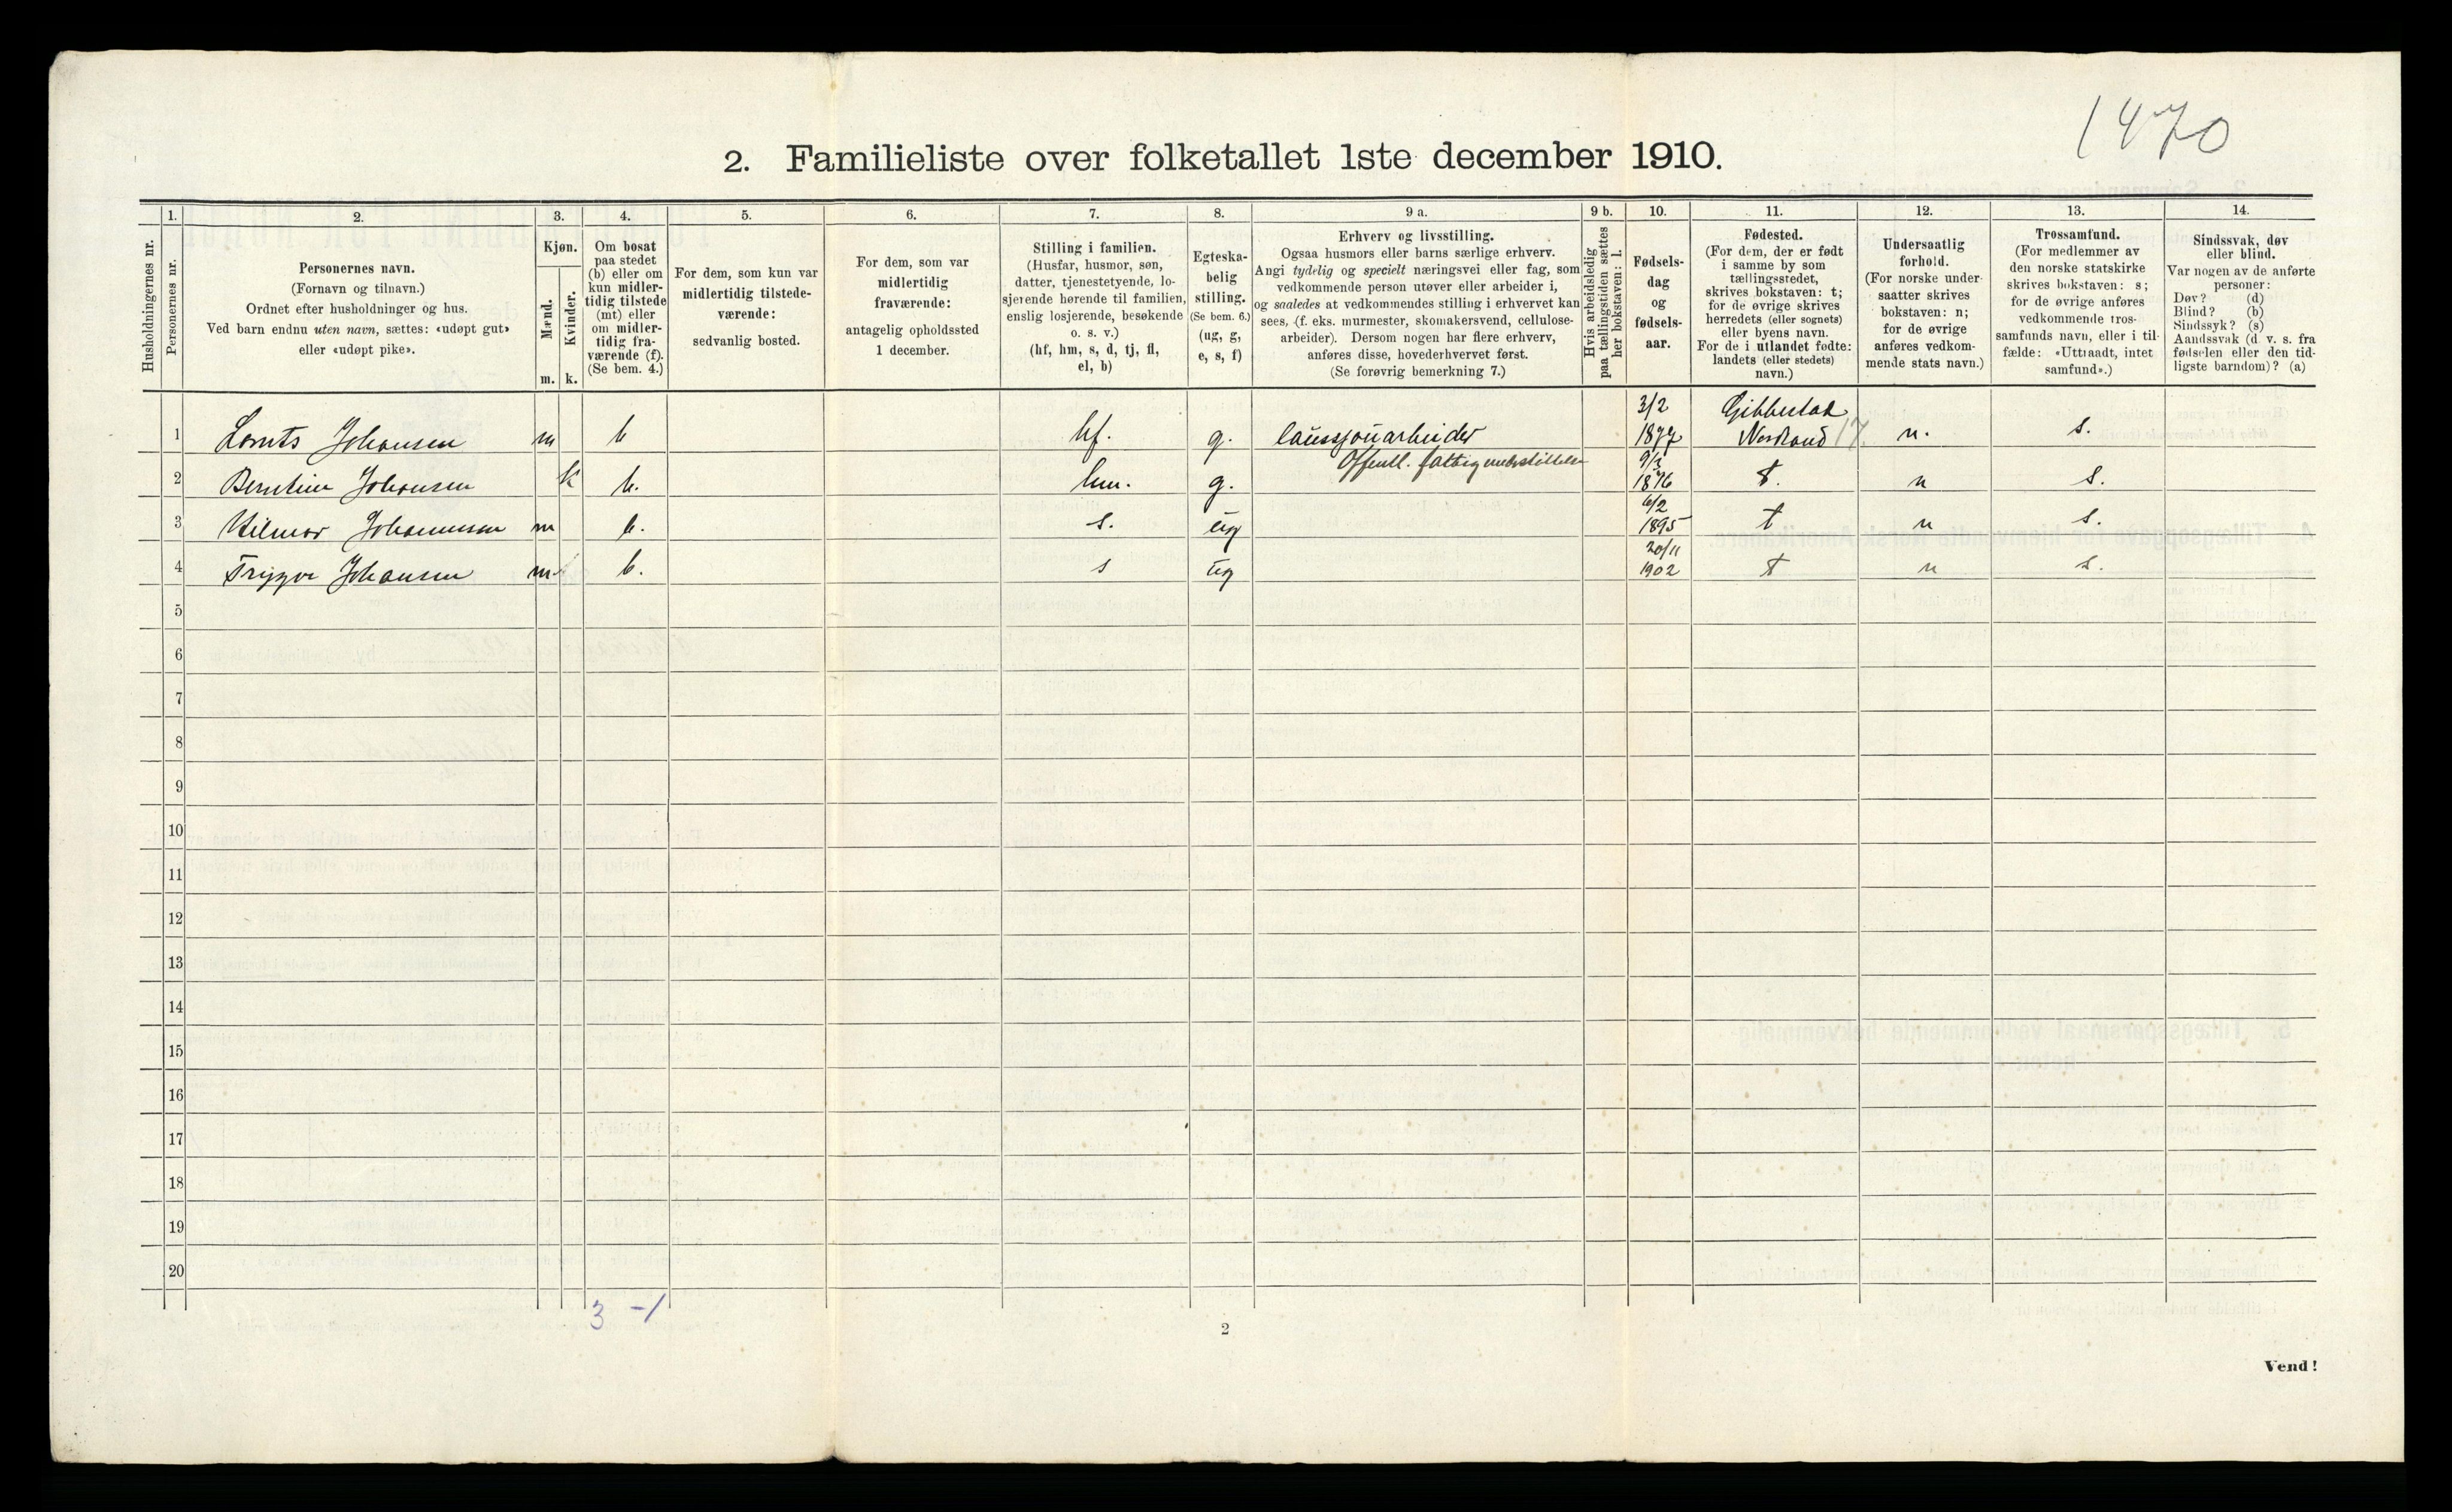 1470
2. Familieliste over folketallet 1ste december 1910.
1. 2. 3. 4. 5. 6. 7. 8. 9 a. 9 b. 10. 11. 12. 13. 14.
Husholdningernes nr.
Personernes nr.
Personernes navn.
(Fornavn og tilnavn.)
Ordnet efter husholdninger og hus.
Ved barn endnu uten navn, sættes: «udøpt gut»
eller «udøpt pike».
Kjøn.
Mænd.
Kvinder.
m. k.
Om bosat
paa stedet
(b) eller om
kun midler-
tidig tilstede
(mt) eller
om midler-
tidig fra-
værende (f).
(Se bem. 4.)
For dem, som kun var
midlertidig tilstede-
værende:
sedvanlig bosted.
For dem, som var
midlertidig
fraværende:
antagelig opholdssted
1 december.
Stilling i familien.
(Husfar, husmor, søn,
datter, tjenestetyende, lo-
sjerende hørende til familien,
enslig losjerende, besøkende
o. s. v.)
(hf, hm, s, d, tj, fl,
el, b)
Egteska-
belig
stilling.
(Se bem. 6.)
(ug, g,
e, s, f)
Erhverv og livsstilling.
Ogsaa husmors eller barns særlige erhverv.
Angi tydelig og specielt næringsvei eller fag, som
vedkommende person utøver eller arbeider i,
og saaledes at vedkommendes stilling i erhvervet kan
sees, (f. eks. murmester, skomakersvend, cellulose-
arbeider). Dersom nogen har flere erhverv,
anføres disse, hovederhvervet først.
(Se forøvrig bemerkning 7.)
Hvis arbeidsledig
paa tællingstiden sættes
her bokstaven: l.
Fødsels-
dag
og
fødsels-
aar.
Fødested.
(For dem, der er født
i samme by som
tællingsstedet,
skrives bokstaven: t;
for de øvrige skrives
herredets (eller sognets)
eller byens navn.
For de i utlandet fødte:
landets (eller stedets)
navn.)
Undersaatlig
forhold.
(For norske under-
saatter skrives
bokstaven: n;
for de øvrige
anføres vedkom-
mende stats navn.)
Trossamfund.
(For medlemmer av
den norske statskirke
skrives bokstaven: s;
for de øvrige anføres
vedkommende tros-
samfunds navn, eller i til-
fælde: «Uttraadt, intet
samfund».)
Sindssvak, døv
eller blind.
Var nogen av de anførte
personer:
Døv? (d)
Blind? (b)
Sindssyk? (s)
Aandssvak (d. v. s. fra
fødselen eller den tid-
ligste barndom)? (a)
3/2 Gibbestad
1 Lornts Johansen m b hf. g. 1877 Nordland 17 n. s.
Offentl. fattigunderstøttelse 9/3
2 Berntine Johansen k b. hm. g. 1876 t. n s.
6/2
3 Hilmar Johannesen m b. s. ug 1895 t n s.
20/11
4 Trygve Johansen m b. s ug 1902 t n s.
5
6
7
8
9
10
11
12
13
14
15
16
17
18
19
20
3 -1
2
Vend!